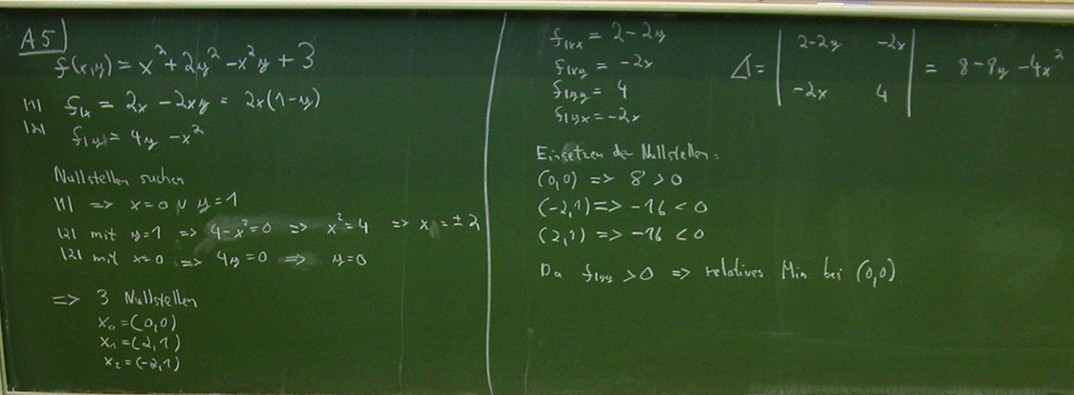 A5)
f(x,y) = x² + 2y² - x²y + 3
|1| f|x = 2x - 2xy = 2x(1-y)
|2| f|y = 4y - x²
Nullstellen suchen
|1| => x=0 ∨ y=1
|2| mit y=1 => 4-x²=0 => x²=4 => x = ±2
|2| mit x=0 => 4y=0 => y=0
=> 3 Nullstellen
x₀ = (0,0)
x₁ = (2,1)
x₂ = (-2,1)
f|xx = 2-2y
f|xy = -2x
f|yy = 4
f|yx = -2x
Δ = | 2-2y -2x |
| -2x 4 | = 8-8y-4x²
Einsetzen der Nullstellen:
(0,0) => 8 > 0
(-2,1) => -16 < 0
(2,1) => -16 < 0
Da f|yy > 0 => relatives Min bei (0,0)